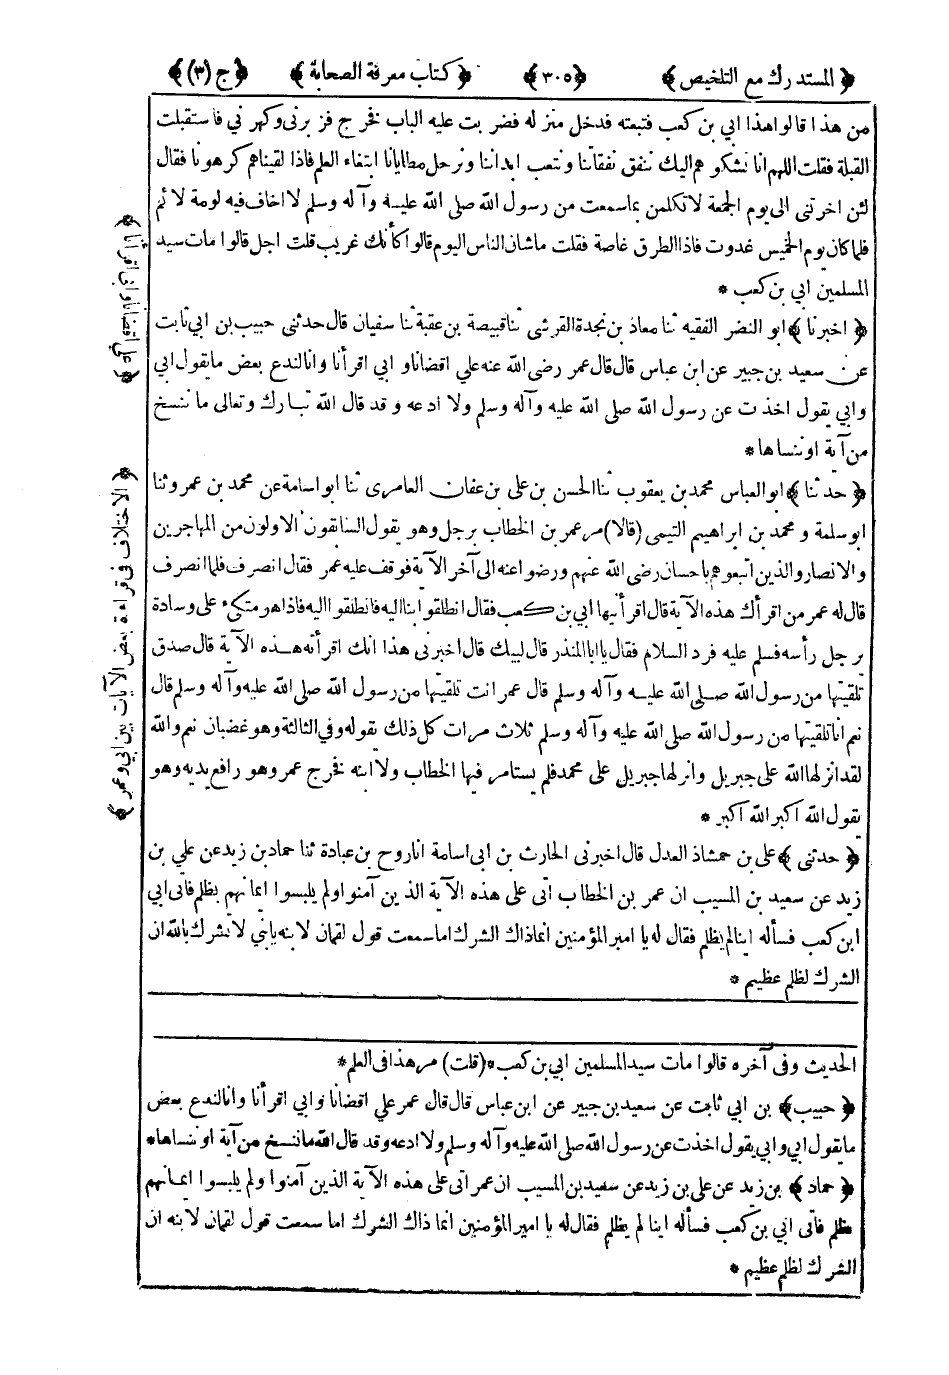 ﴿ المستدرك مع التلخيص ﴾ ﴿٣٠٥﴾ ﴿ كتاب معرفة الصحابة ﴾ ﴿ ج (٣) ﴾
من هذا قالوا هذا ابي بن كعب فتبعته فدخل منزله فضربت عليه الباب فخرج فزبرنى وكهرني فاستقبلت
القبلة فقلت اللهم انا نشكو هم اليك ننفق نفقاتنا ونتعب ابداننا ونرحل مطايانا ابتغاء العلم فاذا لقيناهم كرهونا فقال
لئن اخرتنى الى يوم الجمعة لا تكلمن بما سمعت من رسول الله صلى الله عليه وآله وسلم لا اخاف فيه لومة لائم
فلما كان يوم الخميس غدوت فاذا الطرق غاصة فقلت ماشان الناس اليوم قالوا كأنك غريب قلت اجل قالوا مات سيد
المسلمين ابي بن كعب *
﴿ اخبرنا ﴾ ابو النضر الفقيه ثنا معاذ بن نجدة القرشى ثنا قبيصة بن عقبة ثنا سفيان قال حدثنى حبيب بن ابي ثابت
عن سعيد بن جبير عن ابن عباس قال قال عمر رضى الله عنه علي اقضانا و ابي اقرأنا وانا لندع بعض ما يقول ابي
وابي يقول اخذت عن رسول الله صلى الله عليه وآله وسلم ولا ادعه وقد قال الله تبارك وتعالى ما ننسخ
من آية او ننساها *
﴿ حدثنا ﴾ ابو العباس محمد بن يعقوب ثنا الحسن بن على بن عفان العامرى ثنا ابو اسامة عن محمد بن عمرو ثنا
ابو سلمة و محمد بن ابراهيم التيمى (قالا) مر عمر بن الخطاب برجل وهو يقول السابقون الاولون من المهاجرين
والانصار والذين اتبعوهم باحسان رضى الله عنهم ورضوا عنه الى آخر الآية فوقف عليه عمر فقال انصرف فلما انصرف
قال له عمر من اقرأك هذه الآية قال اقرأنيها ابي بن كعب فقال انطلقوا بنا اليه فانطلقوا اليه فاذا هو متكىء على وسادة
يرجل رأسه فسلم عليه فرد السلام فقال يا ابا المنذر قال لبيك قال اخبرنى هذا انك اقرأته هذه الآية قال صدق
تلقيتها من رسول الله صلى الله عليه وآله وسلم قال عمر انت تلقيتها من رسول الله صلى الله عليه وآله وسلم قال
نعم انا تلقيتها من رسول الله صلى الله عليه وآله وسلم ثلاث مرات كل ذلك يقوله وفي الثالثة وهو غضبان نعم والله
لقد انزلها الله على جبريل وانزلها جبريل على محمد فلم يستامر فيها الخطاب ولا ابنه فخرج عمر وهو رافع يديه وهو
يقول الله اكبر الله اكبر *
﴿ حدثنى ﴾ على بن حمشاذ العدل قال اخبرنى الحارث بن ابى اسامة انا روح بن عبادة ثنا حماد بن زيد عن علي بن
زيد عن سعيد بن المسيب ان عمر بن الخطاب اتى على هذه الآية الذين آمنوا ولم يلبسوا ايمانهم بظلم فاتى ابي
ابن كعب فسأله اينا لم يظلم فقال له يا امير المؤمنين انما ذاك الشرك اما سمعت قول لقمان لابنه يابني لا تشرك بالله ان
الشرك لظلم عظيم *
الحديث وفى آخره قالوا مات سيد المسلمين ابي بن كعب * (قلت) مر هذا فى العلم *
﴿ حبيب ﴾ بن ابي ثابت عن سعيد بن جبير عن ابن عباس قال قال عمر علي اقضانا وابي اقرأنا وانا لندع بعض
ما يقول ابي وابي يقول اخذت عن رسول الله صلى الله عليه وآله وسلم ولا ادعه وقد قال الله ما ننسخ من آية او ننساها *
﴿ حماد ﴾ بن زيد عن على بن زيد عن سعيد بن المسيب ان عمر اتى على هذه الآية الذين آمنوا ولم يلبسوا ايمانهم
بظلم فاتى ابي بن كعب فسأله اينا لم يظلم فقال له يا امير المؤمنين انما ذاك الشرك اما سمعت قول لقمان لابنه ان
الشرك لظلم عظيم *
﴿ علي اقضانا وابي اقرأنا ﴾
﴿ الاختلاف في قراءة بعض الآيات بين ابي وعمر ﴾